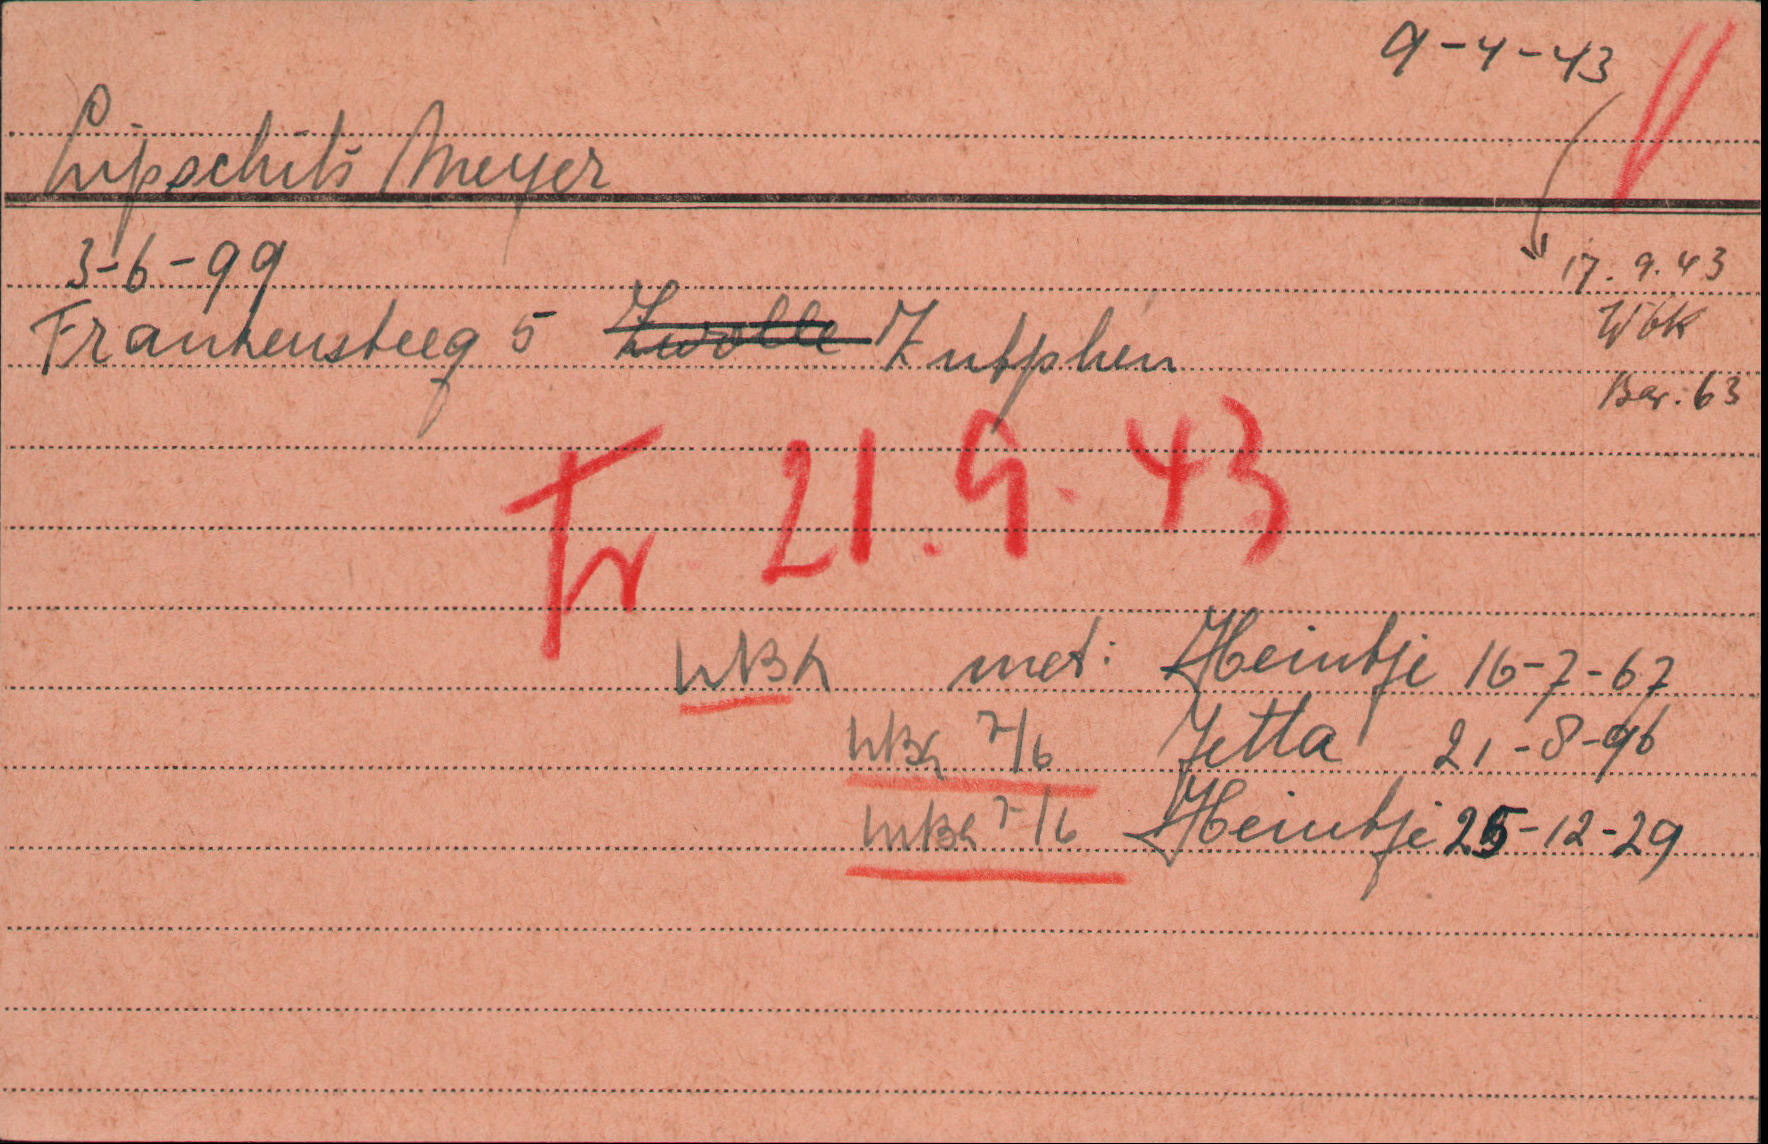 9-4-43
Lipschits Meyer
3-6-99
17.9.43
Frankensteeg 5 Zwolle Zutphen
Wbk
Bar. 63
Fr 21.9.43
WBK met: Heintje 16-7-67
WBK 7/6 Jetta 21-8-96
WBK 7/6 Heintje 25-12-29